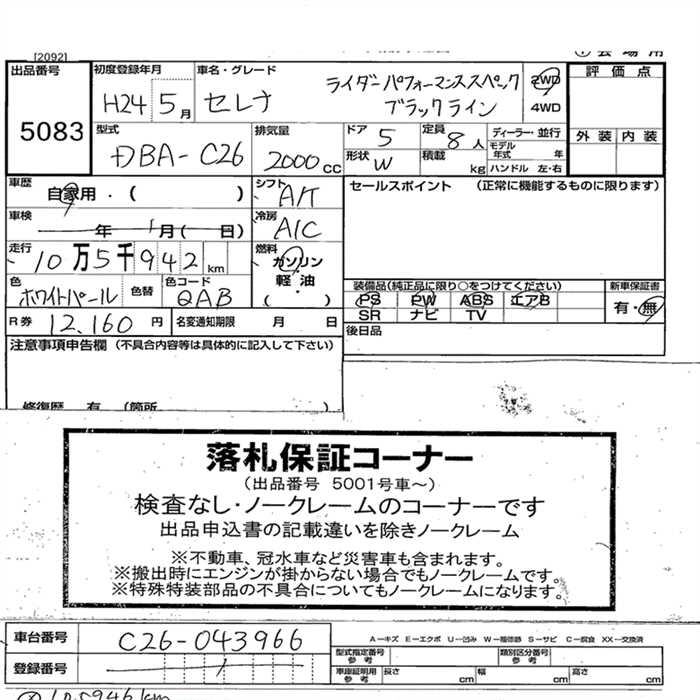 [2092]
出品番号 初度登録年月 車名・グレード 評価点
5083 H24 5月 セレナ ライダーパフォーマンススペック ブラックライン 2WD 4WD
外装 内装
型式 DBA-C26 排気量 2000cc ドア 5 定員 8人 ディーラー・並行
モデル年式 年
形状 W 積載 kg ハンドル 左・右
車歴 自家用・( ) シフト A/T セールスポイント (正常に機能するものに限ります)
車検 年 月( 日) 冷房 A/C
走行 10万5千942km 燃料 ガソリン 軽油・
色 ホワイトパール 色替 色コード QAB 装備品(純正品に限り○をつけてください) 新車保証書
PS PW ABS エアB 有・無
SR ナビ TV
R券 12,160円 名変通知期限 月 日 後日品
注意事項申告欄 (不具合内容等は具体的に記入して下さい)
落札保証コーナー
(出品番号 5001号車～)
検査なし・ノークレームのコーナーです
出品申込書の記載違いを除きノークレーム
※不動車、冠水車など災害車も含まれます。
※搬出時にエンジンが掛からない場合でもノークレームです。
※特殊特装部品の不具合についてもノークレームになります。
車台番号 C26-043966 A－キズ E－エクボ U－凹み W－補修跡 S－サビ C－腐食 XX－交換済
型式指定番号 参考 類別区分番号 参考
登録番号 車庫証明用 参考 長さ cm 幅 cm 高さ cm